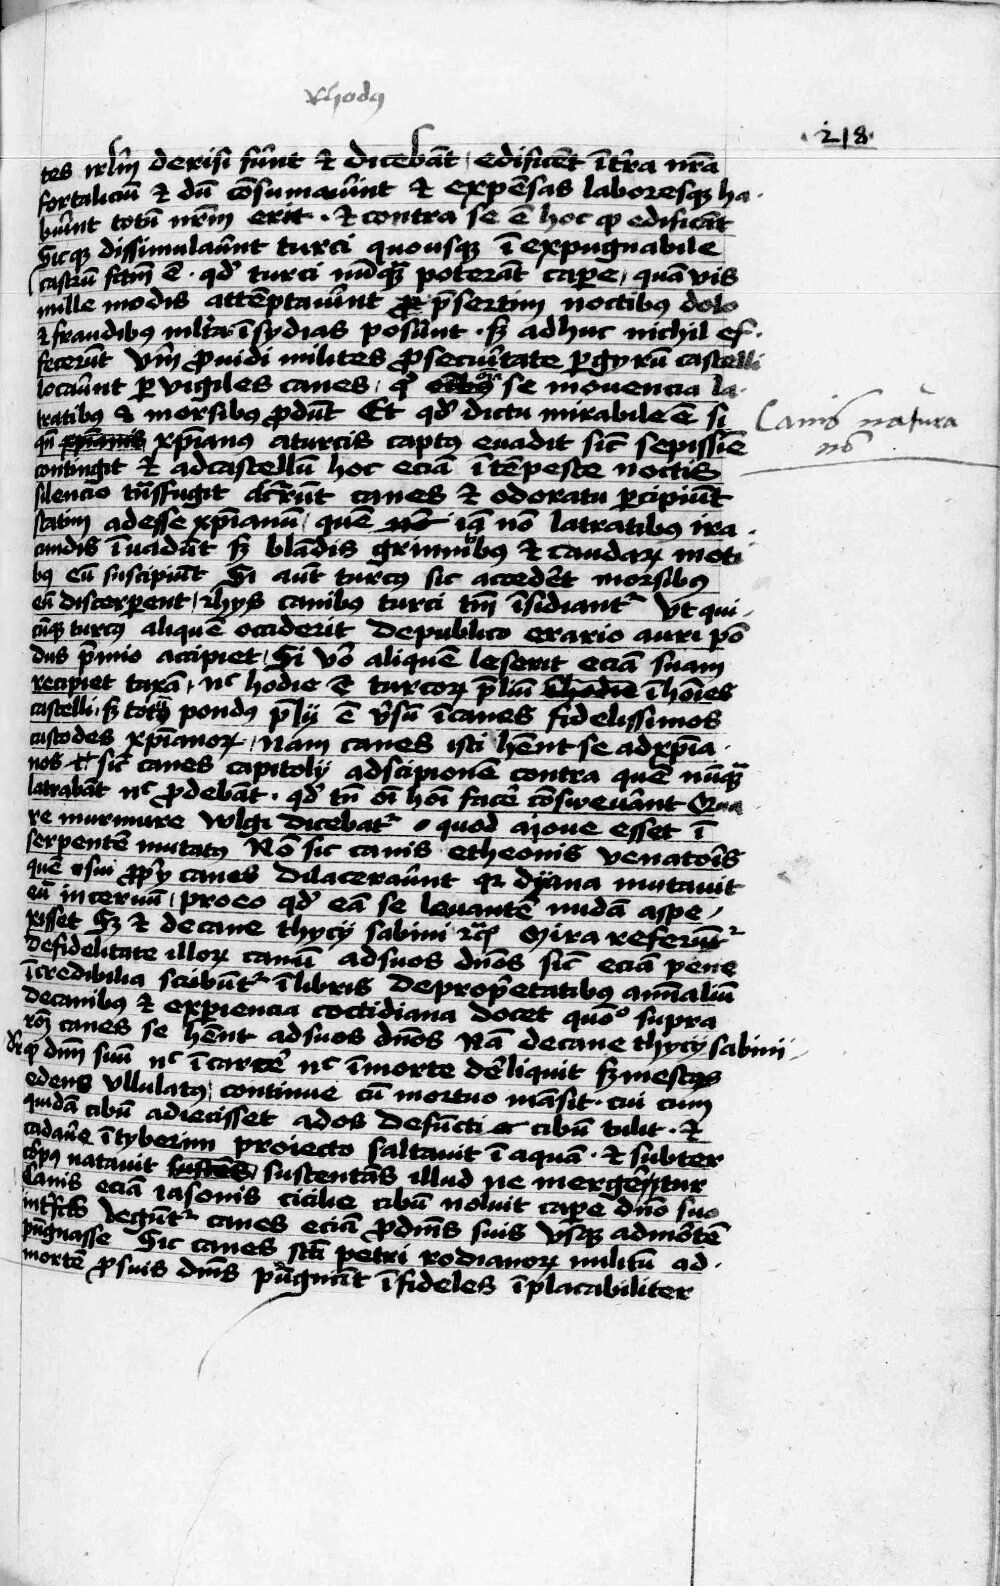 Rhodꝯ
·218·
tes irlm̄ derisi fūnt & dicebāt / edificēt ī tr̄a nr̄a
fortaliciū & dū cōsumauīnt & expēsas laboresqꝫ ha·
buīnt totū nr̄m erit · & contra se ē hoc qꝫ edificāt
Sicqꝫ dissimulaūnt turci quousqꝫ ī expugnabile
castrū fctm̄ ē · qd' turci nūqꝫ poterāt cape / quā vis
mille modis attēptauīnt p̄sertim noctibꝯ dolo
& fraudibꝯ mlt'a īsydias posūnt · sꝫ adhuc nichil ef·
fecerūt Vm̄ ꝓuidi milites ꝓ secūitate ꝑ gyrū castelli
locaūnt ꝑ vigiles canes / qͥ se mouencia la·
tratibꝯ & morsibꝯ ꝓdūt Et qd' dictu mirabile ē si
qn̄ xp̄ianꝯ a turcis captꝯ euadit sic̄ sepissīe
contingit & ad castellū hoc eciā ī tēpeste noctis
silencio tn̄sfugit canes & odoratu ꝑcipiūt
statim adesse xp̄ianū / quē nō latratibꝯ ira·
cundis īuadūt sꝫ blādis grinnitibꝯ & caudaꝝ moti
bꝯ eū suscipiūt Si aūt turcꝯ sic accedēt morsibꝯ
eū discerperent / & hys canibꝯ turci tm̄ īsidiant' vt qui·
cūqꝫ turcꝯ aliquē occiderit de publico erario auri pō
dus p̄mio accipiet / Si vō aliquē leserit eciā suam
recipiet taxā / nc̄ hodie ē turcoꝝ p̄liū ī hoīes
castelli / sꝫ totū pondꝯ p̄lij ē v̄su ī canes fidelissimos
custodes xp̄ianoꝝ / Nam canes isti hēnt se ad xp̄ia·
nos sic̄ canes capitolij ad scipionē contra quē nūqꝫ
latrabāt nc̄ ꝓdebāt · qd' tn̄ oī hoī facē cōsweuānt Qua
re murmure wlgi dicebat' quod a ioue esset ī
serpentē mutatꝯ Nō sic canis etheonis venatoīs
quē sui ꝓpͥj canes dilaceraūnt qꝛ dyana mutauit
eū in ceruū / pro eo qd' eā se leuantē nudā aspe /
xisset Sꝫ & de cane thycij sabini rc̄ꝫ Mira referūt'
de fidelitate illoꝝ canū ad suos dn̄os sic̄ eciā pene
īcredibilia scͥbūt' ī libris de ꝓpͥetatibꝯ aīaliū
de canibꝯ & exꝑiencia cottidiana docet quō supra
rōꝫ canes se hēnt ad suos dn̄os Nā de cane thycij sabini /
qͥ dn̄m suū nc̄ ī carcē nc̄ ī morte dēliquit sꝫ mestꝯ
edens vllulatꝯ / continue cū mortuo māsit · cui cum
quidā cibū adiecisset ad os defūcti cibū tulit · &
cadaūe ī tyberim proiecto saltauit ī aquā · & subter
cōpꝯ natauit sustentās illud ne mergēntur
Canis eciā iasonis cicilie cibū noluit cape dn̄o suo
int̄fc̄o Legūt' canes eciā ꝓ dn̄is suis vsqꝫ ad mōtē
pugnasse Sic canes sc̄i petri rodianoꝝ militū ad·
mortē ꝓ suis dn̄is pugnāt ī fideles īplacabiliter
Canis natura
nō